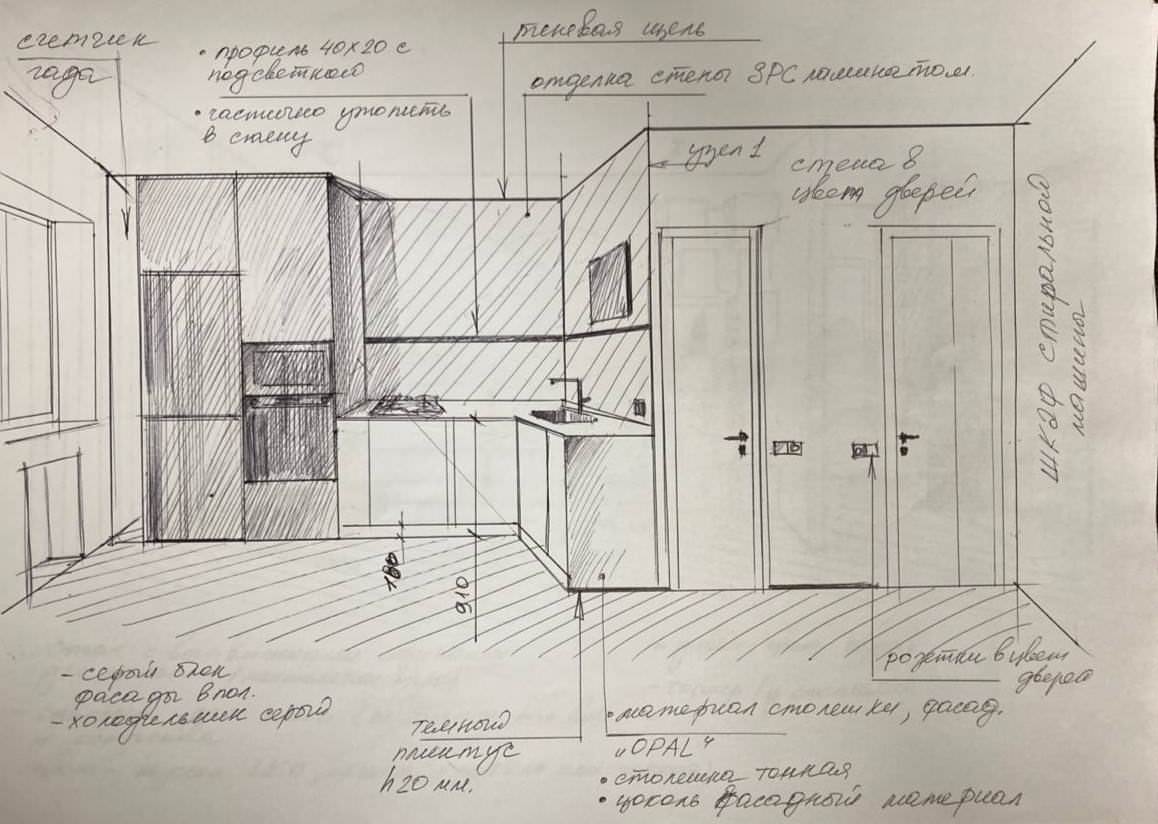 счетчик
гада
• профиль 40х20 с
подсветкой
• частично утопить
в стену
теневая щель
отделка стены SPC ламинатом.
узел 1
стена в
цвет дверей
шкаф стиральной
машины
180
910
– серый блок
фасады в пол.
– холодильник серый
темный
плинтус
h 20 мм.
розетки в цвет
дверей
• материал столешки, фасад.
„OPAL"
• столешка тонкая
• цоколь фасадный материал